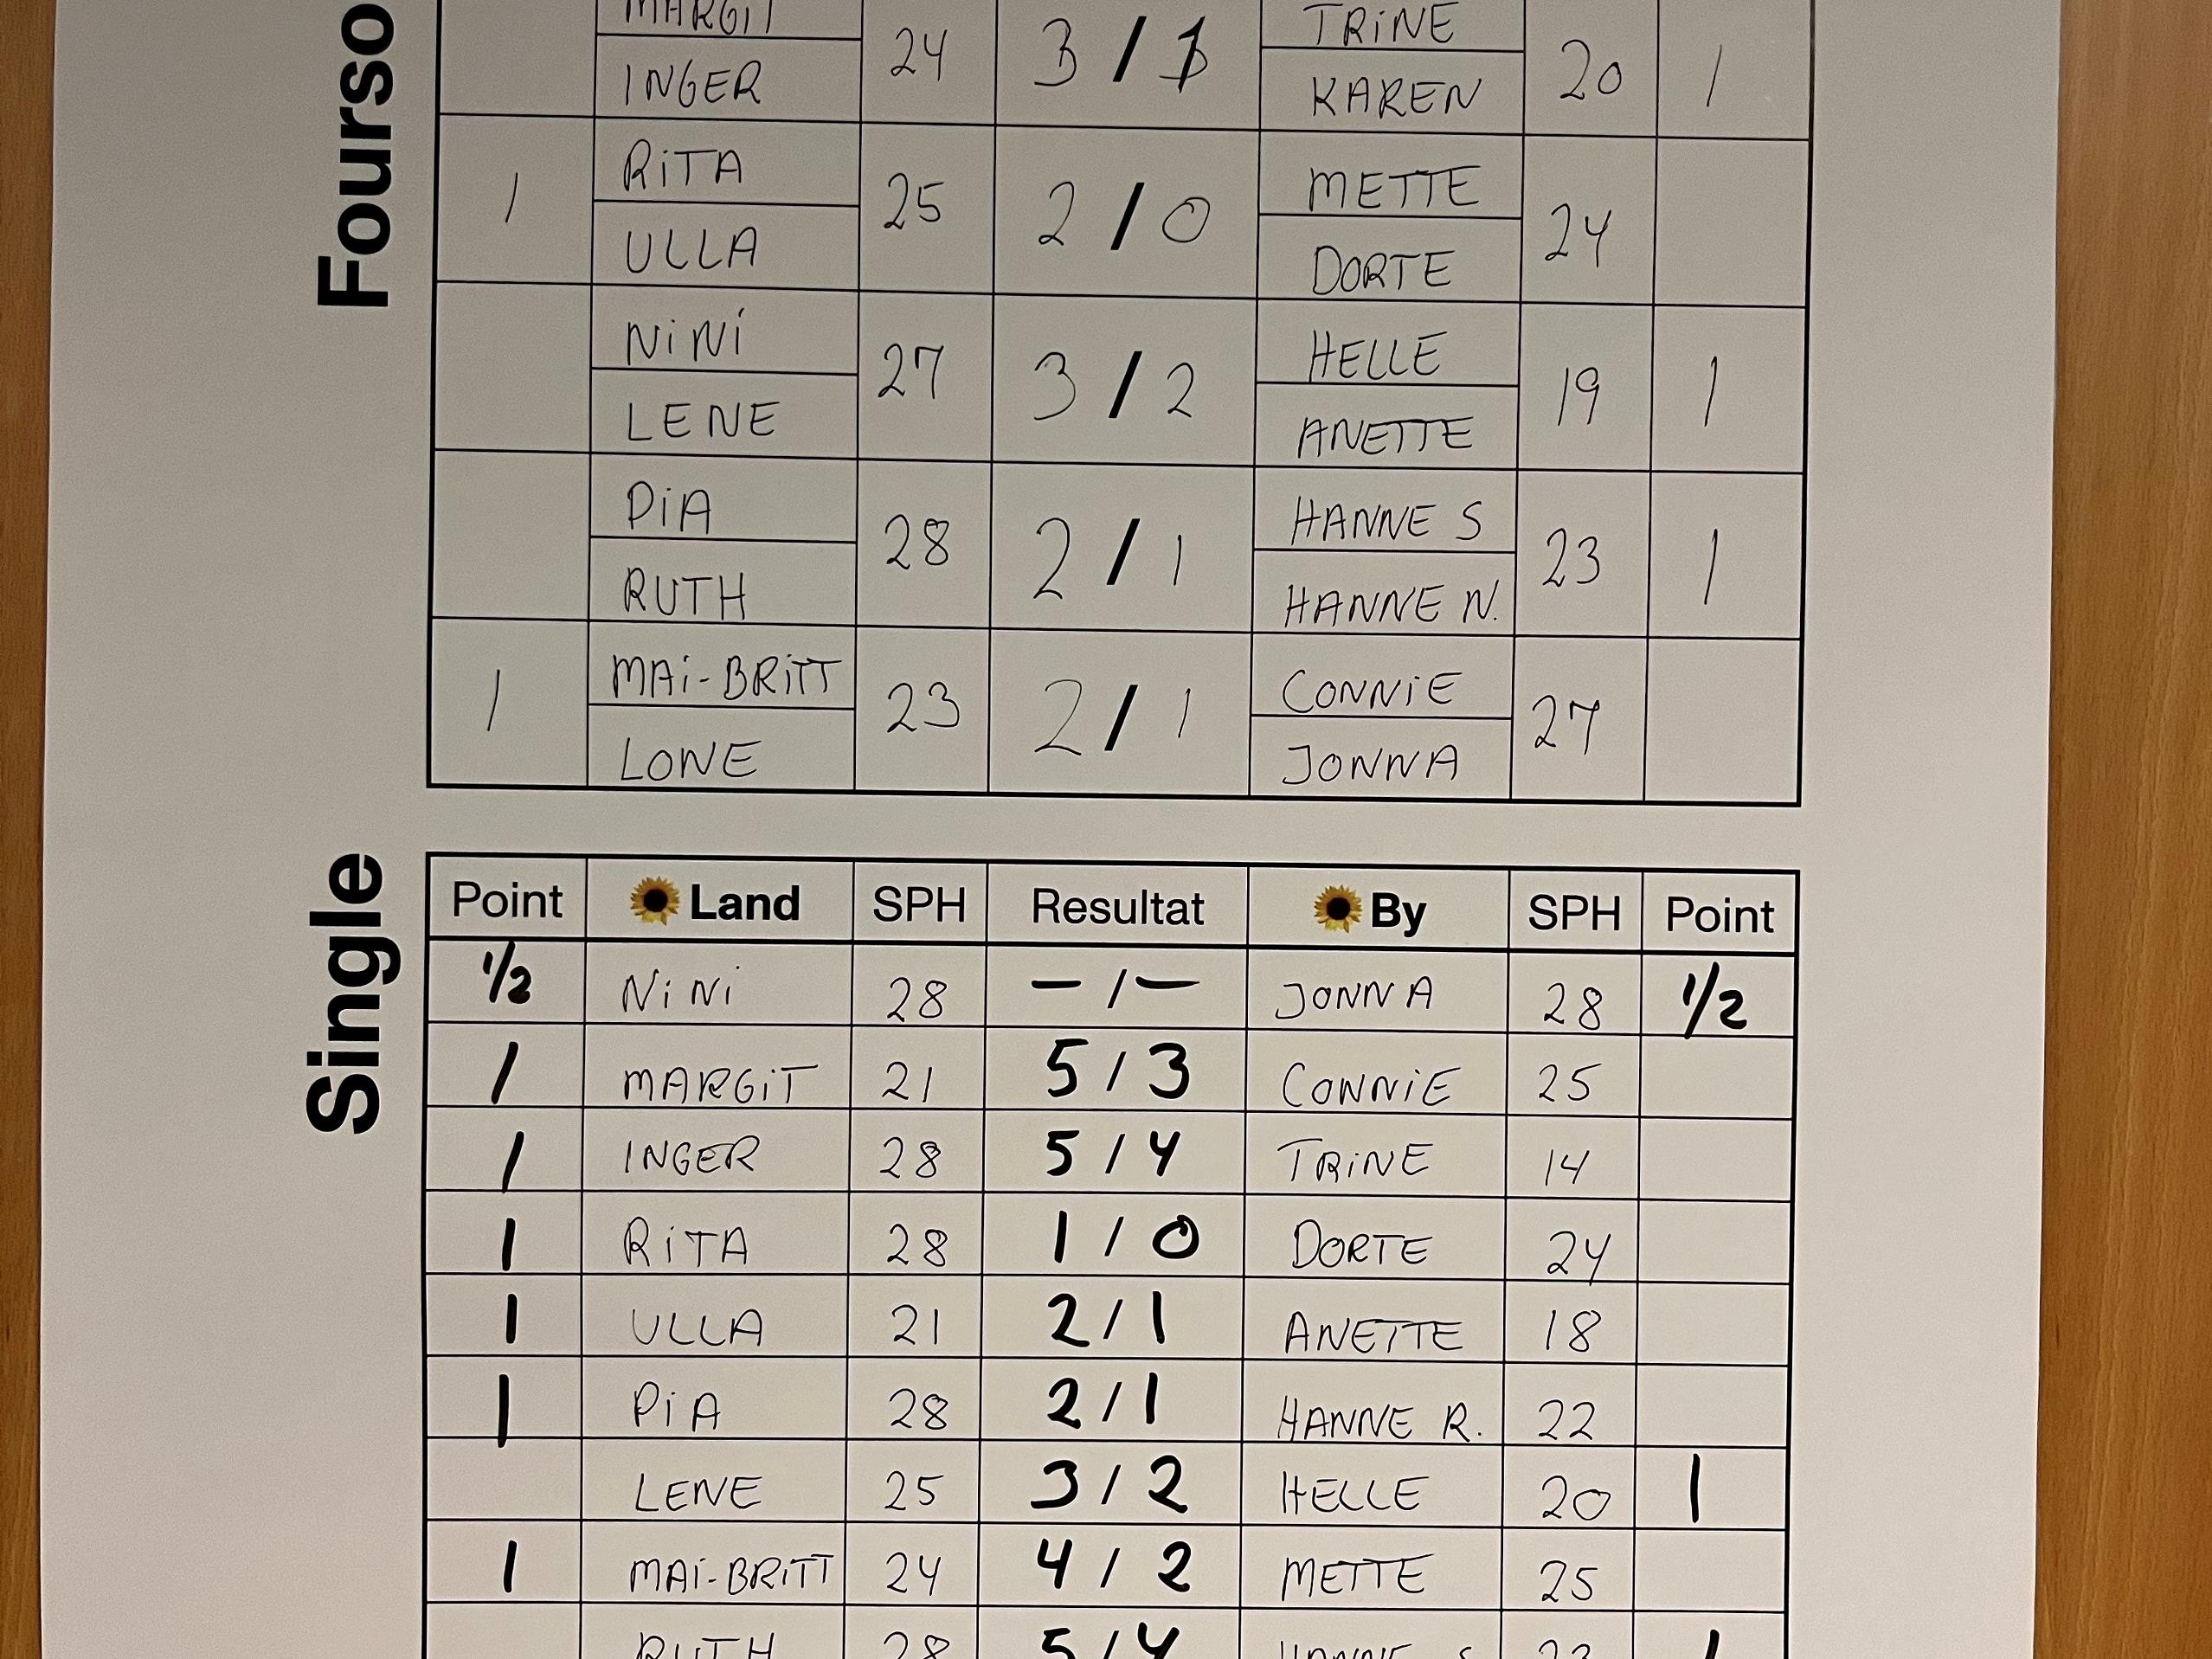 Fourso
MARGIT 24 3 / 1 TRiNE 20 1
INGER KAREN
1 RiTA 25 2 / 0 METTE 24
ULLA DORTE
NiNi 27 3 / 2 HELLE 19 1
LENE ANETTE
PiA 28 2 / 1 HANNE S 23 1
RUTH HANNE N.
1 MAi-BRiTT 23 2 / 1 CONNiE 27
LONE JONNA
Single
Point Land SPH Resultat By SPH Point
1/2 NiNi 28 - / - JONNA 28 1/2
1 MARGiT 21 5 / 3 CONNiE 25
1 INGER 28 5 / 4 TRiNE 14
1 RiTA 28 1 / 0 DORTE 24
1 ULLA 21 2 / 1 ANETTE 18
1 PiA 28 2 / 1 HANNE R. 22
LENE 25 3 / 2 HELLE 20 1
1 MAi-BRiTT 24 4 / 2 METTE 25
RUTH 28 5 / 4 HANNE S 23 1